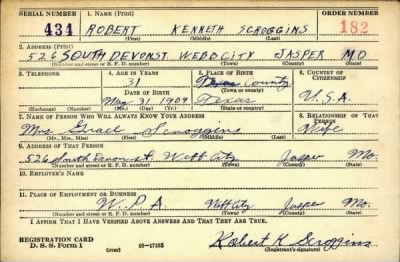 SERIAL NUMBER 1. NAME (Print) ORDER NUMBER
434 ROBERT KENNETH SCROGGINS 182
(First) (Middle) (Last)
2. ADDRESS (Print)
526 SOUTH DEVON ST. WEBB CITY JASPER MO
(Number and street or R. F. D. number) (Town) (County) (State)
3. TELEPHONE 4. AGE IN YEARS 5. PLACE OF BIRTH 6. COUNTRY OF CITIZENSHIP
31 Texas County
DATE OF BIRTH (Town or county)
May 31 1909 Texas U.S.A.
(Exchange) (Number) (Mo.) (Day) (Yr.) (State or country)
7. NAME OF PERSON WHO WILL ALWAYS KNOW YOUR ADDRESS 8. RELATIONSHIP OF THAT PERSON
Mrs Grace Scroggins Wife
(Mr., Mrs., Miss) (First) (Middle) (Last)
9. ADDRESS OF THAT PERSON
526 South Devon st. Webb City Jasper Mo.
(Number and street or R. F. D. number) (Town) (County) (State)
10. EMPLOYER'S NAME
11. PLACE OF EMPLOYMENT OR BUSINESS
W.P.A. Webb City Jasper Mo.
(Number and street or R. F. D. number) (Town) (County) (State)
I AFFIRM THAT I HAVE VERIFIED ABOVE ANSWERS AND THAT THEY ARE TRUE.
REGISTRATION CARD
D. S. S. Form 1 (over) 16-17105 Robert K Scroggins
(Registrant's signature)